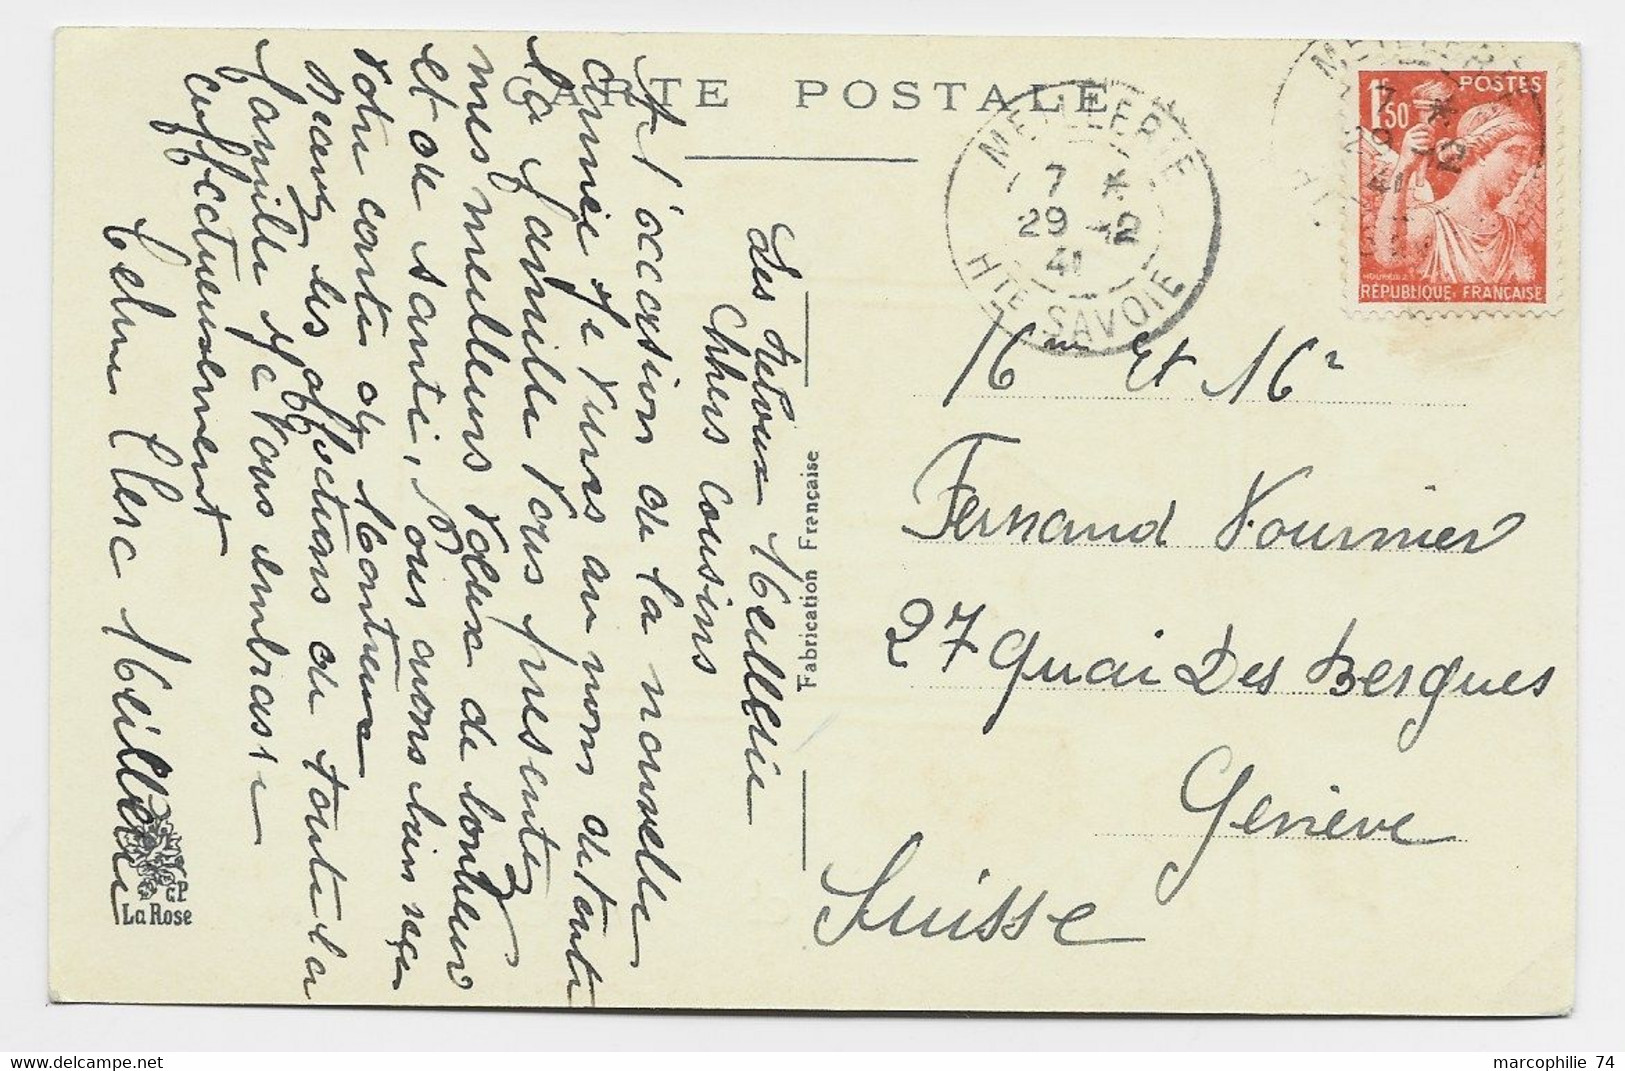 CARTE POSTALE
Les Filoux Meillerie
Chers Cousins
A l'occasion de la nouvelle
année je viens au nom de toute
la famille vous présentez
mes meilleurs vœux de bonheur
et de santé, Nous avons bien reçu
votre carte de Montreux
Recevez les affections de toute la
famille Je vous embrasse
affectueusement
Clerc Meillerie
Fabrication Française
GP
La Rose
MEILLERIE
7 *
29 12
41
HTE SAVOIE
MEILLERIE
7 *
29 12
41
1F50
POSTES
RÉPUBLIQUE FRANÇAISE
Mme et Mr
Fernand Vournier
27 Quai Des Bergues
Genève
Suisse
marcophilie 74